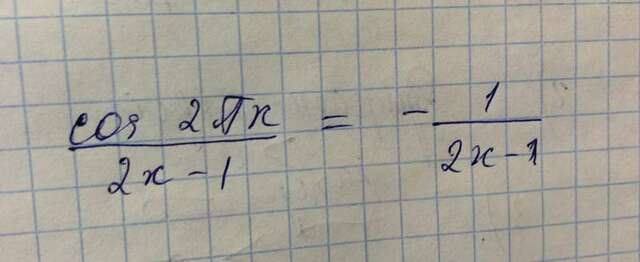 cos 2πx / 2x - 1 = - 1 / 2x - 1